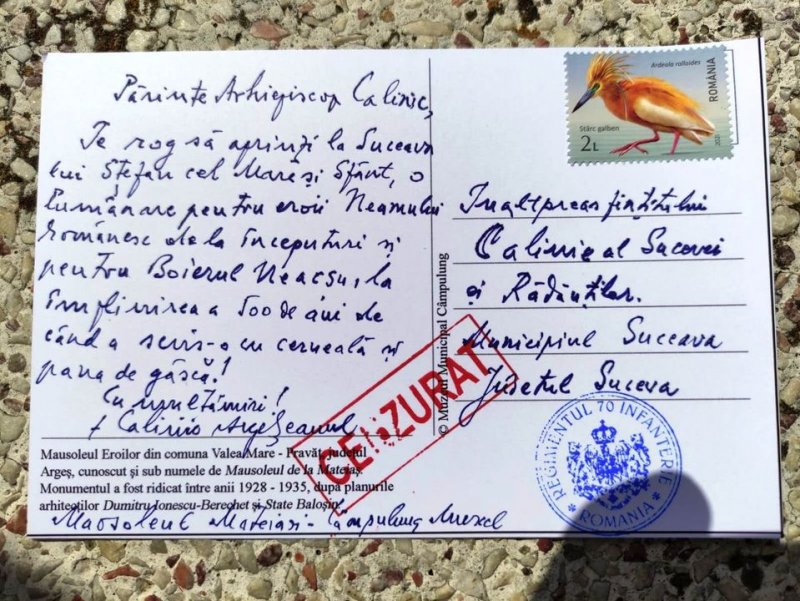 Părinte Arhiepiscop Calinic,
Te rog să aprinți la Suceava
lui Ștefan cel Mare și Sfânt, o
lumânare pentru eroii Neamului
Românesc de la începuturi și
pentru Boierul Neacșu, la
împlinirea a 500 de ani de
când a scris-o cu cerneală și
pana de gâscă!
Cu mulțămiri!
† Calinic Argeșeanul
Mausoleul Eroilor din comuna Valea Mare - Pravăț, județul
Argeș, cunoscut și sub numele de Mausoleul de la Mateiaș.
Monumentul a fost ridicat între anii 1928 - 1935, după planurile
arhitecților Dumitru Ionescu-Berechet și State Baloșin.
Mausoleul Mateiași - Câmpulung Muscel
© Muzeul Municipal Câmpulung
CENZURAT
Ardeola ralloides
ROMÂNIA
Stârc galben
2L
2021
Inaltpreasfințitului
Calinic al Sucevei
și Rădăuților.
Municipiul Suceava
Județul Suceva
REGIMENTUL 70 INFANTERIE
ROMANIA